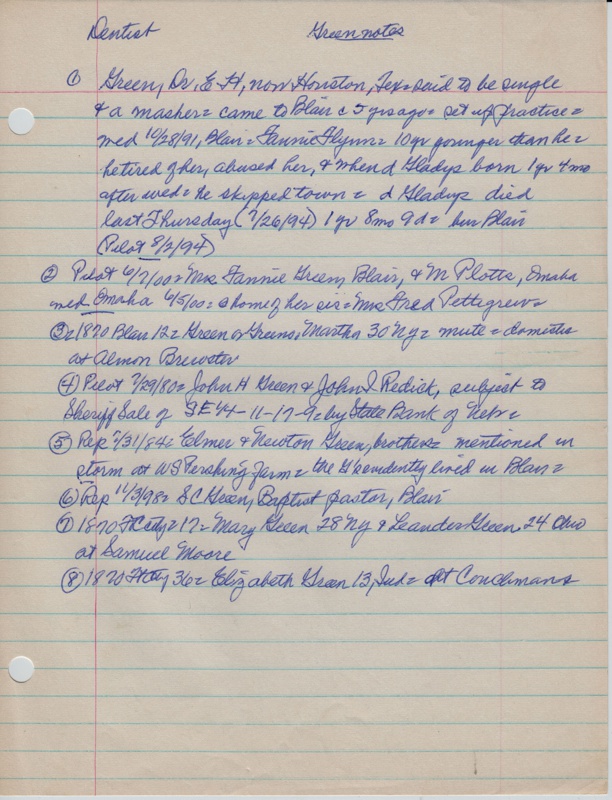 Dentist Green notes
① Green, Dr, E H, now Houston, Tex = said to be single
& a masher = came to Blair c 5 yrs ago = set up practice =
med 10/28/91, Blair = Fannie Flynn = 10 yr younger than he =
he tired of her, abused her, & when d Gladys born 1 yr 4 mo
after wed = he skipped town = d Gladys died
last Thursday (7/26/94) 1 yr 8 mo 9 d = bur Blair
(Pilot 8/2/94)
② Pilot 6/7/00 = Mrs Fannie Green, Blair, & M Plotts, Omaha
med Omaha 6/5/00 = @ home of her sis = Mrs Fred Pettegrew =
③ = 1870 Blair 12 = Green or Greens, Martha 30 NY = mute = domestic
at Almon Brewster
④ Pilot 7/29/80 = John H Green & John I Redick, subject to
Sheriff Sale of SE 1/4-11-17-9 = by State Bank of Nebr =
⑤ Rep 7/31/84 = Elmer & Newton Green, brothers = mentioned in
storm at W S Pershing farm = the G's evidently lived in Blair =
⑥ Rep 11/3/98 = S C Green, Baptist pastor, Blair
⑦ 1870 = 17 = Mary Green 28 NY & Leander Green 24 Ohio
at Samuel Moore
⑧ 1870 36 = Elizabeth Green 13, Ind = at Couchmans